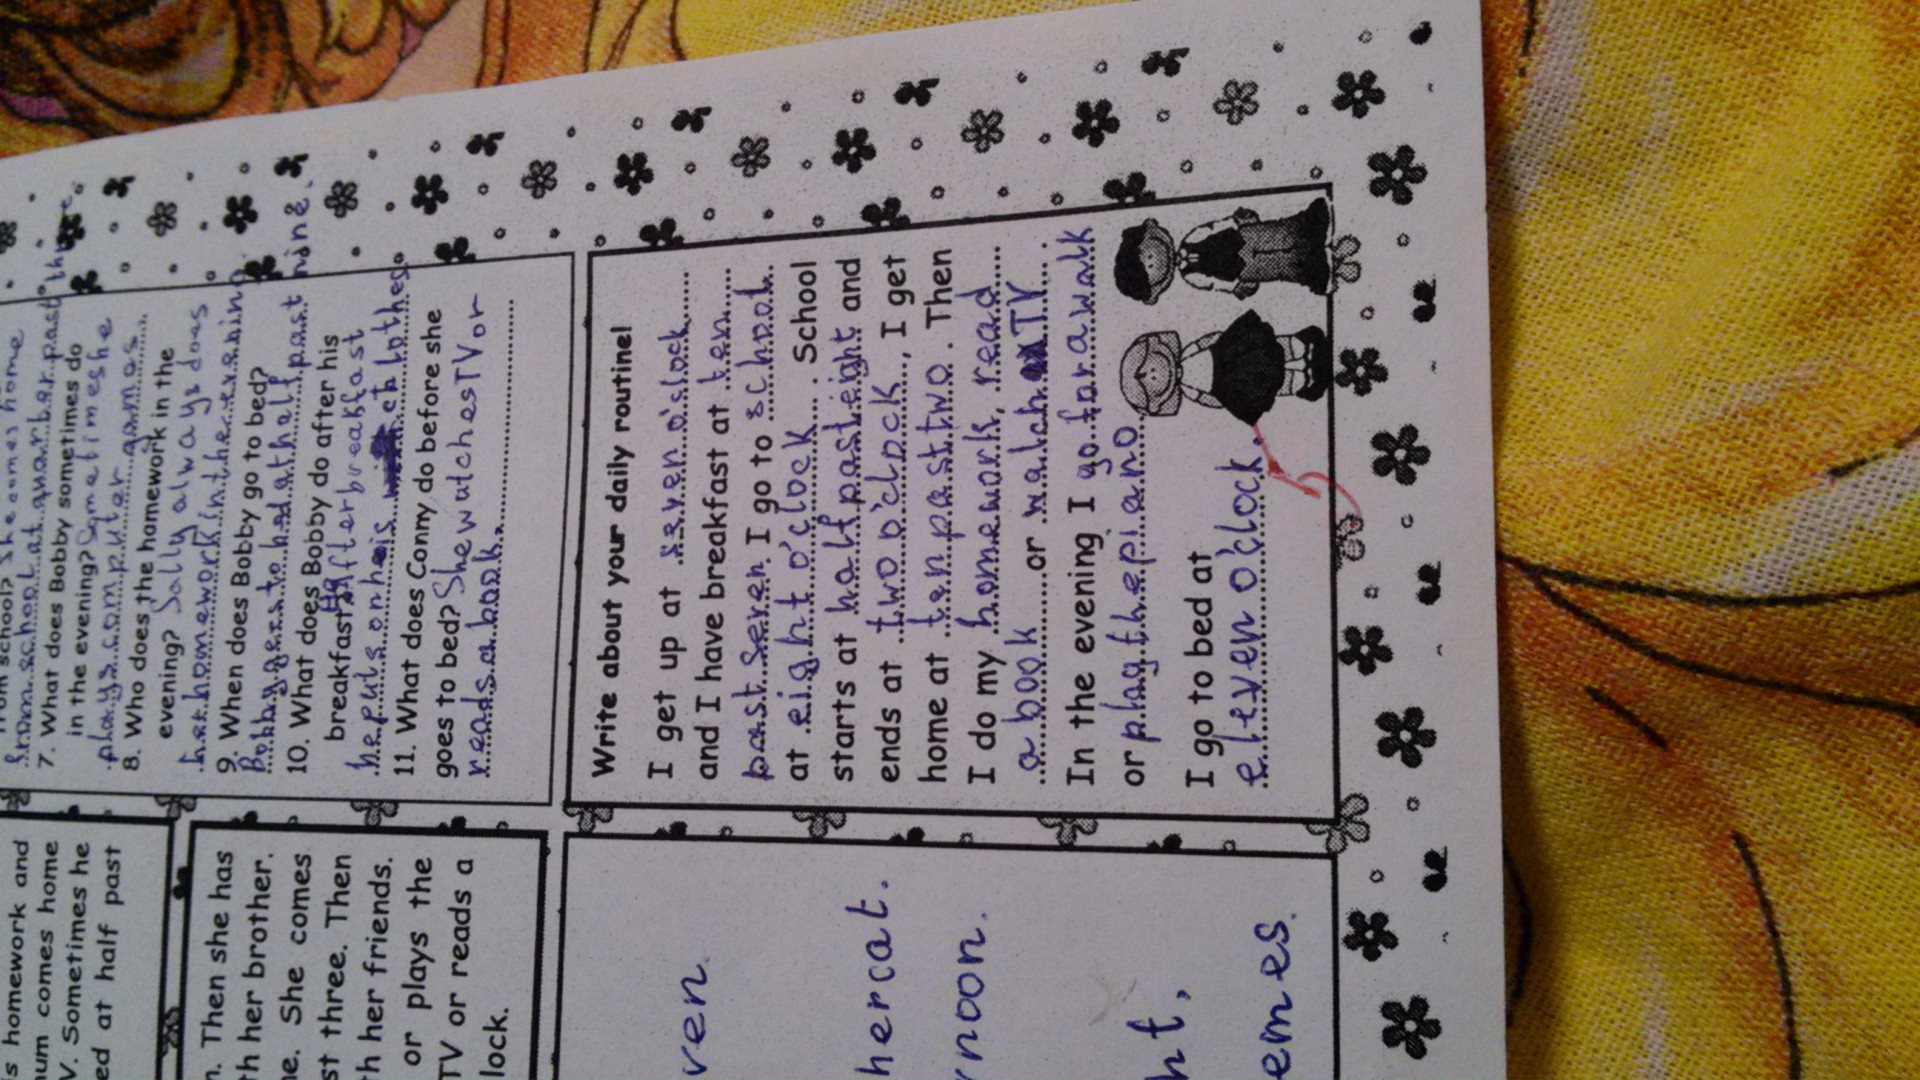 from school? She comes home
from school at quarter past three.
7. What does Bobby sometimes do
in the evening? Sometimes he
plays computer games.
8. Who does the homework in the
evening? Sally always does
her homework in the evening.
9. When does Bobby go to bed?
Bobby goes to bed at half past nine.
10. What does Bobby do after his
breakfast? After breakfast
he puts on his clothes
11. What does Conny do before she
goes to bed? She watches TV or
reads a book.
Write about your daily routine!
I get up at seven o'clock
and I have breakfast at ten
past seven I go to school
at eight o'clock. School
starts at half past eight and
ends at two o'clock, I get
home at ten past two. Then
I do my homework, read
a book or watch TV.
In the evening I go for a walk
or play the piano.
I go to bed at
eleven o'clock.
s homework and
num comes home
V. Sometimes he
ed at half past
n. Then she has
th her brother.
ne. She comes
st three. Then
th her friends.
or plays the
TV or reads a
lock.
ven.
her cat.
rnoon.
ht,
emes.